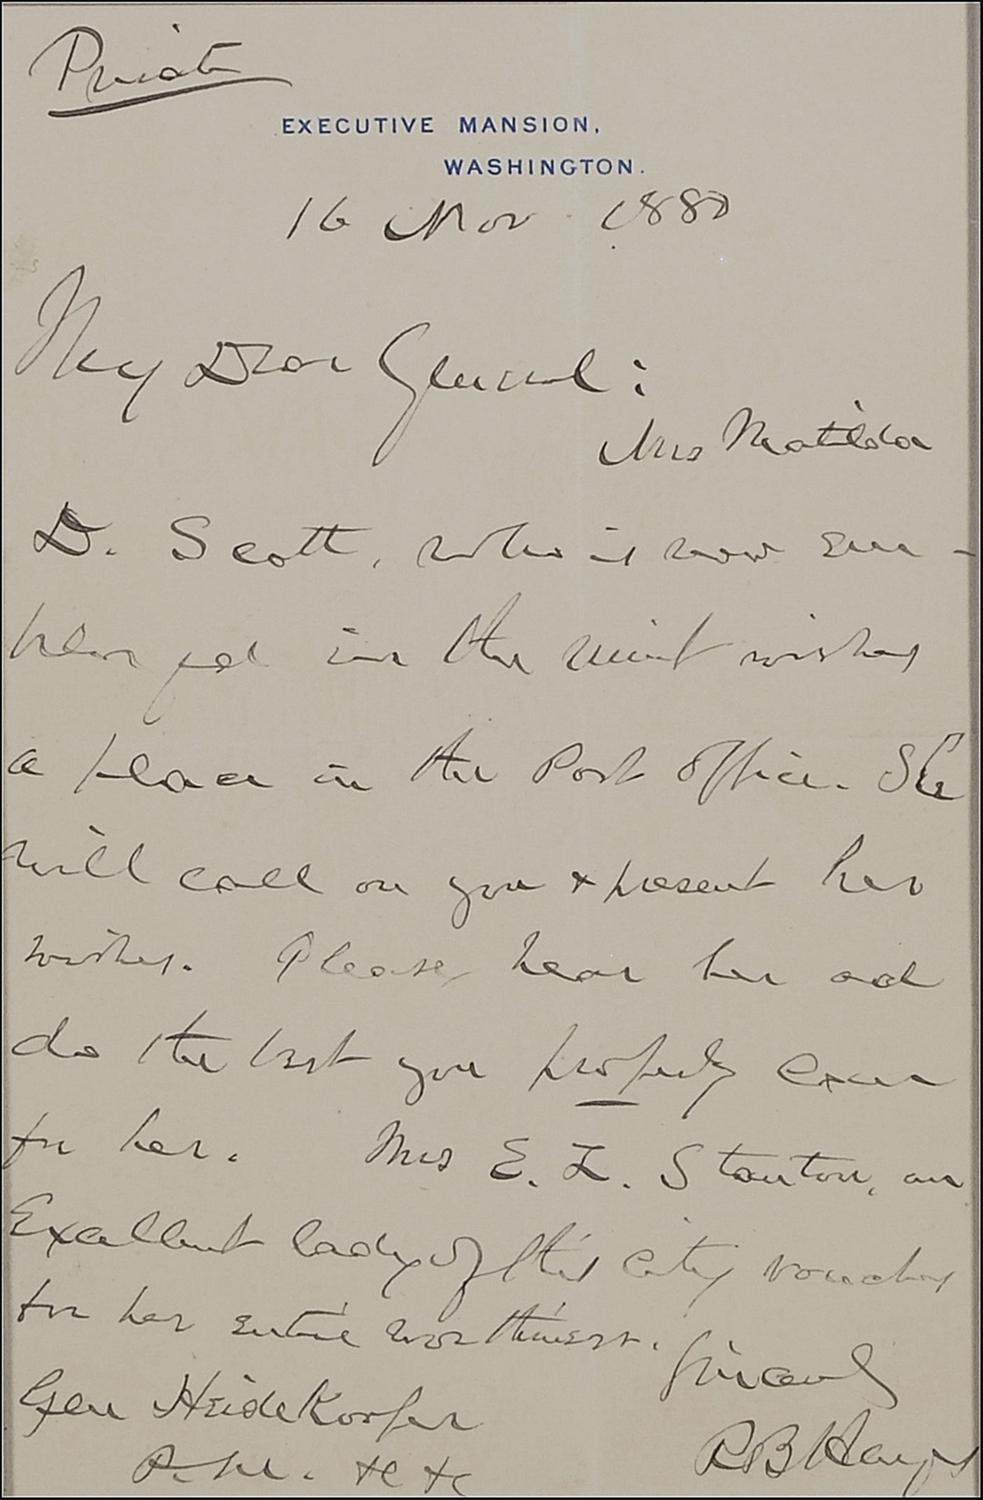 Private
EXECUTIVE MANSION,
WASHINGTON.
16 Nov 1880
My Dear General:
Mrs Matilda
D. Scott, who is now em-
ployed in the mint wishes
a place in the Post Office. She
will call on you & present her
wishes. Please hear her and
do the best you properly can
for her. Mrs E. L. Stanton, an
Excellent lady of this City vouches
for her entire worthiness.
Sincerely
Gen Heidekoper
R B Hayes
P. M. &c &c